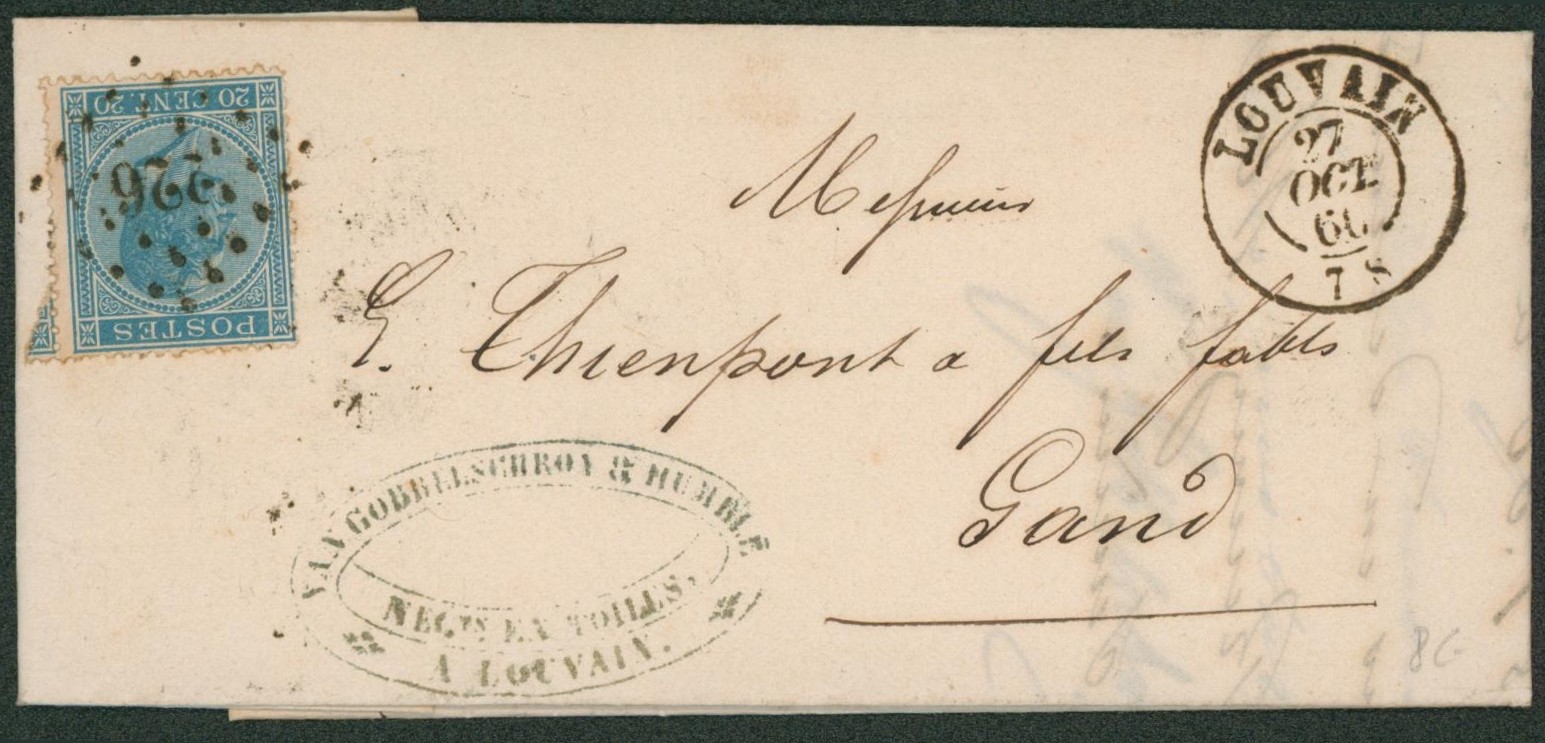 20 CENT. 20
226
POSTES
LOUVAIN
27
OCT
7 8
Messieurs
E. Thienpont a fils fabts
Gand
VAN GOBBELSCHROY & HUMBLE
NEGTS EN TOILES,
A LOUVAIN.